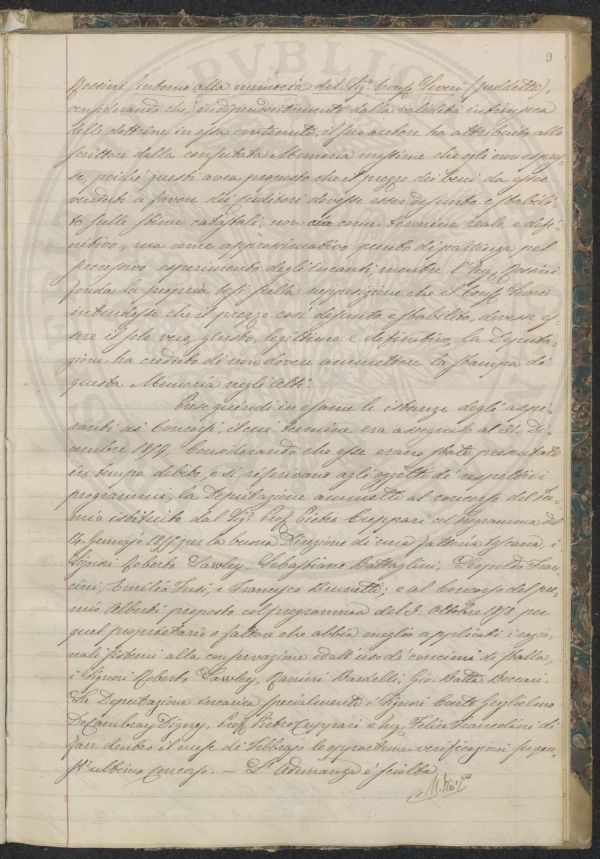 9
Rossini Antonio alla memoria del Sigr Consr Siveri (suddetta),
considerando che, indipendentemente dalla validità intrinseca
delle dottrine in essa contenute, il suo autore ha attribuito allo
scrittore della confutata Memoria massime che egli non espres-
se, poiché questi avea proposto che il prezzo dei beni da esse
vendersi a favore dei creditori dovesse esser desunto e stabili-
to sulle stime catastali, non come termine reale e defi-
nitivo, ma come approssimativo punto di partenza pel
successivo esperimento degli incanti, mentre l'Ing. Rossini
fonda la propria tesi sulla supposizione che il
intendesse che il prezzo così desunto e stabilito, dovesse es-
sere il solo vero, giusto, legittimo e definitivo, la Deputa-
zione ha creduto di non dovere ammettere la stampa di
questa Memoria negli Atti.
Prese quindi in esame le istanze degli aspi-
ranti ai Concorsi, il cui termine era assegnato al 31 Di-
cembre 1879. Considerando che esse erano state presentate
in tempo debito, e si riferivano agli oggetti dei respettivi
programmi, la Deputazione ammette al concorso del Pre-
mio istituito dal Sigr Prof. Pietro Cuppari col programma del
Gennajo per la buona Direzione di una fattoria toscana, i
Signori Roberto Lawley, Sebastiano Battaglini, Leopoldo Fran-
cini, Emilio Fusi, e Francesco Brunetti; e al Concorso del pre-
mio Alberti proposto col programma del Ottobre 1878 per
quel proprietario o fattore che abbia meglio applicati i razio-
nali sistemi alla conservazione e dall'uso di concimi di stalla,
i Signori Roberto Lawley, Ranieri Bardelli, Gio Batta Beccari.
La Deputazione incarica specialmente i Signori Conte Guglielmo
DeCambray Digny, Prof. Pietro Cuppari e Ing. Felice Francolini di
fare dentro il mese di Febbrajo le opportune verificazioni su que-
st'ultimo Concorso. — L'Adunanza è sciolta